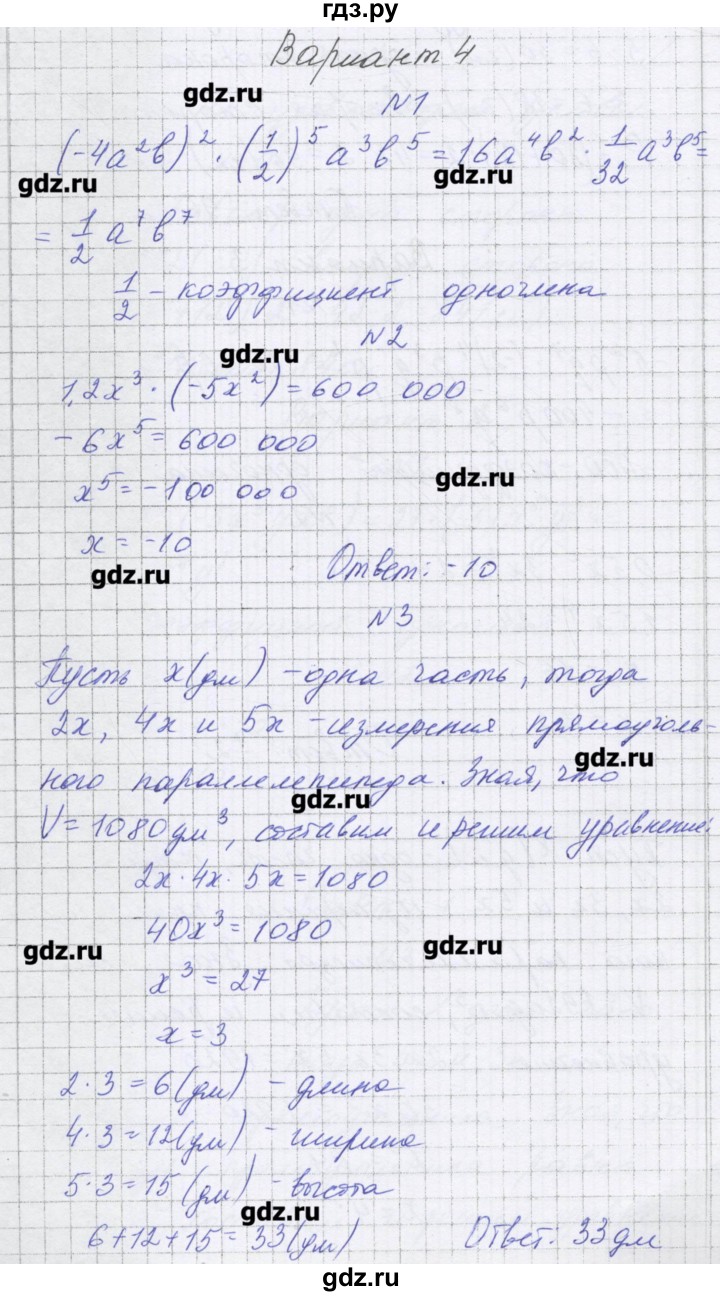 гдз.ру
Вариант 4
gdz.ru
№1
(-4a²b)² · (1/2)⁵ a³b⁵ = 16a⁴b² · 1/32 a³b⁵ =
gdz.ru gdz.ru
= 1/2 a⁷b⁷
1/2 - коэффициент одночлена
№2
gdz.ru
1,2x³ · (-5x²) = 600 000
-6x⁵ = 600 000
gdz.ru
x⁵ = -100 000
x = -10
Ответ: -10
gdz.ru
№3
Пусть x(дм) - одна часть, тогда
2x, 4x и 5x - измерения прямоуголь-
gdz.ru
ного параллелепипеда. Зная, что
gdz.ru
V = 1080 дм³, составим и решим уравнение:
2x · 4x · 5x = 1080
40x³ = 1080
gdz.ru gdz.ru
x³ = 27
x = 3
2 · 3 = 6(дм) - длина
4 · 3 = 12(дм) - ширина
5 · 3 = 15 (дм) - высота
gdz.ru
6 + 12 + 15 = 33(дм) Ответ: 33 дм
gdz.ru